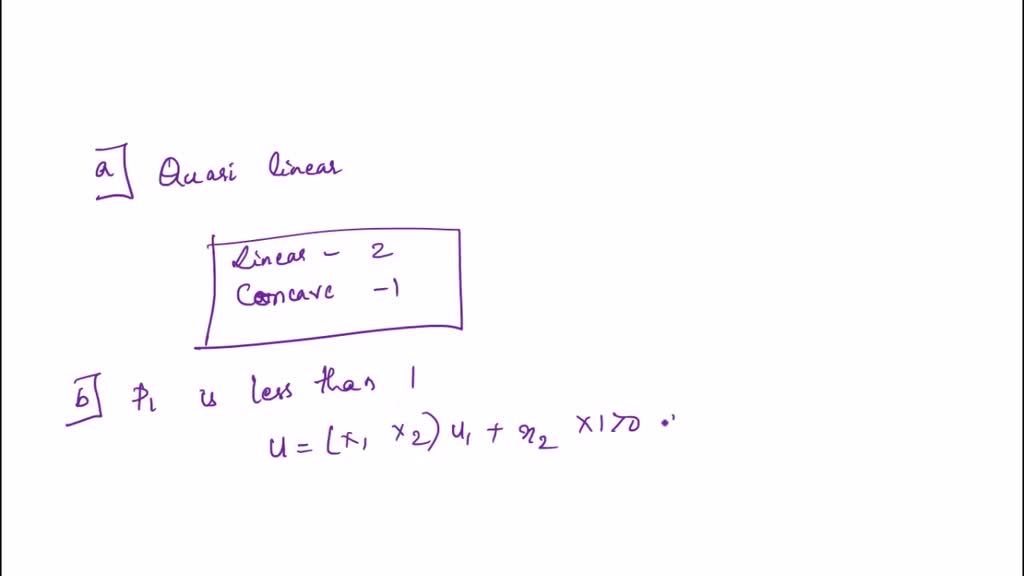 a] Quasi linear
Linear - 2
Concave - 1
b] P₁ is less than 1
u = (x₁ x₂) u₁ + x₂ x1>0